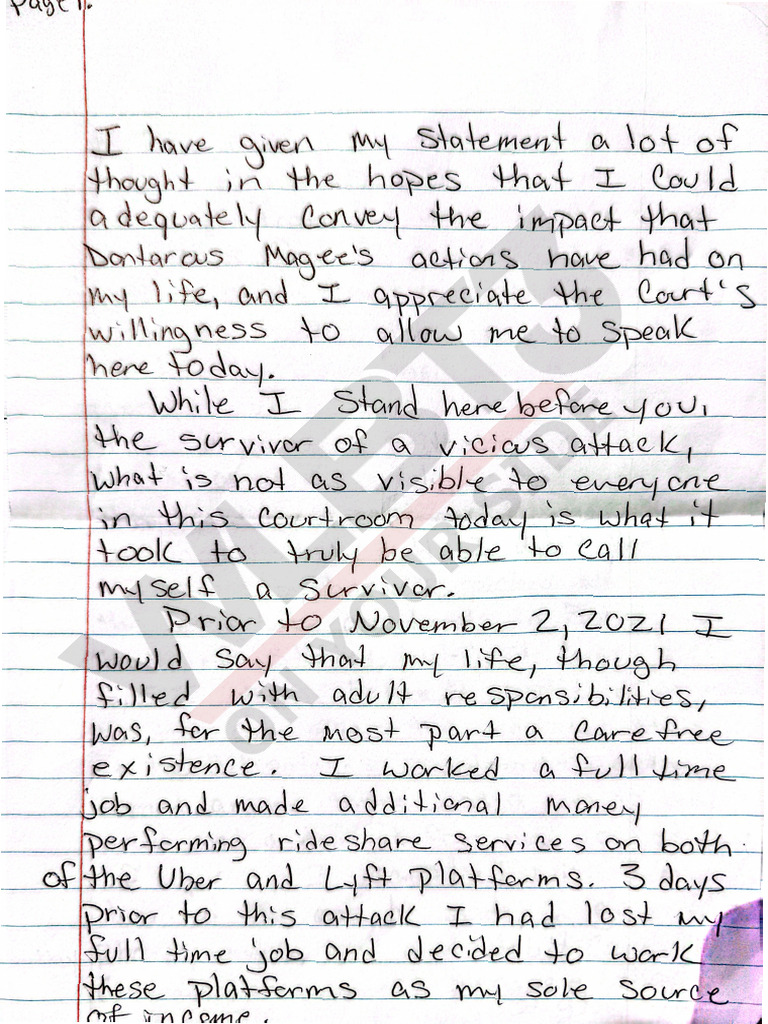 Page 1.
I have given my statement a lot of
thought in the hopes that I could
adequately convey the impact that
Dontarous Magee's actions have had on
my life, and I appreciate the Court's
willingness to allow me to speak
here today.
While I stand here before you,
the survivor of a vicious attack,
what is not as visible to everyone
in this courtroom today is what it
took to truly be able to call
myself a survivor.
Prior to November 2, 2021 I
would say that my life, though
filled with adult responsibilities,
was, for the most part a carefree
existence. I worked a full time
job and made additional money
performing rideshare services on both
of the Uber and Lyft platforms. 3 days
prior to this attack I had lost my
full time job and decided to work
these platforms as my sole source
of income.
WLBT3
ON YOUR SIDE